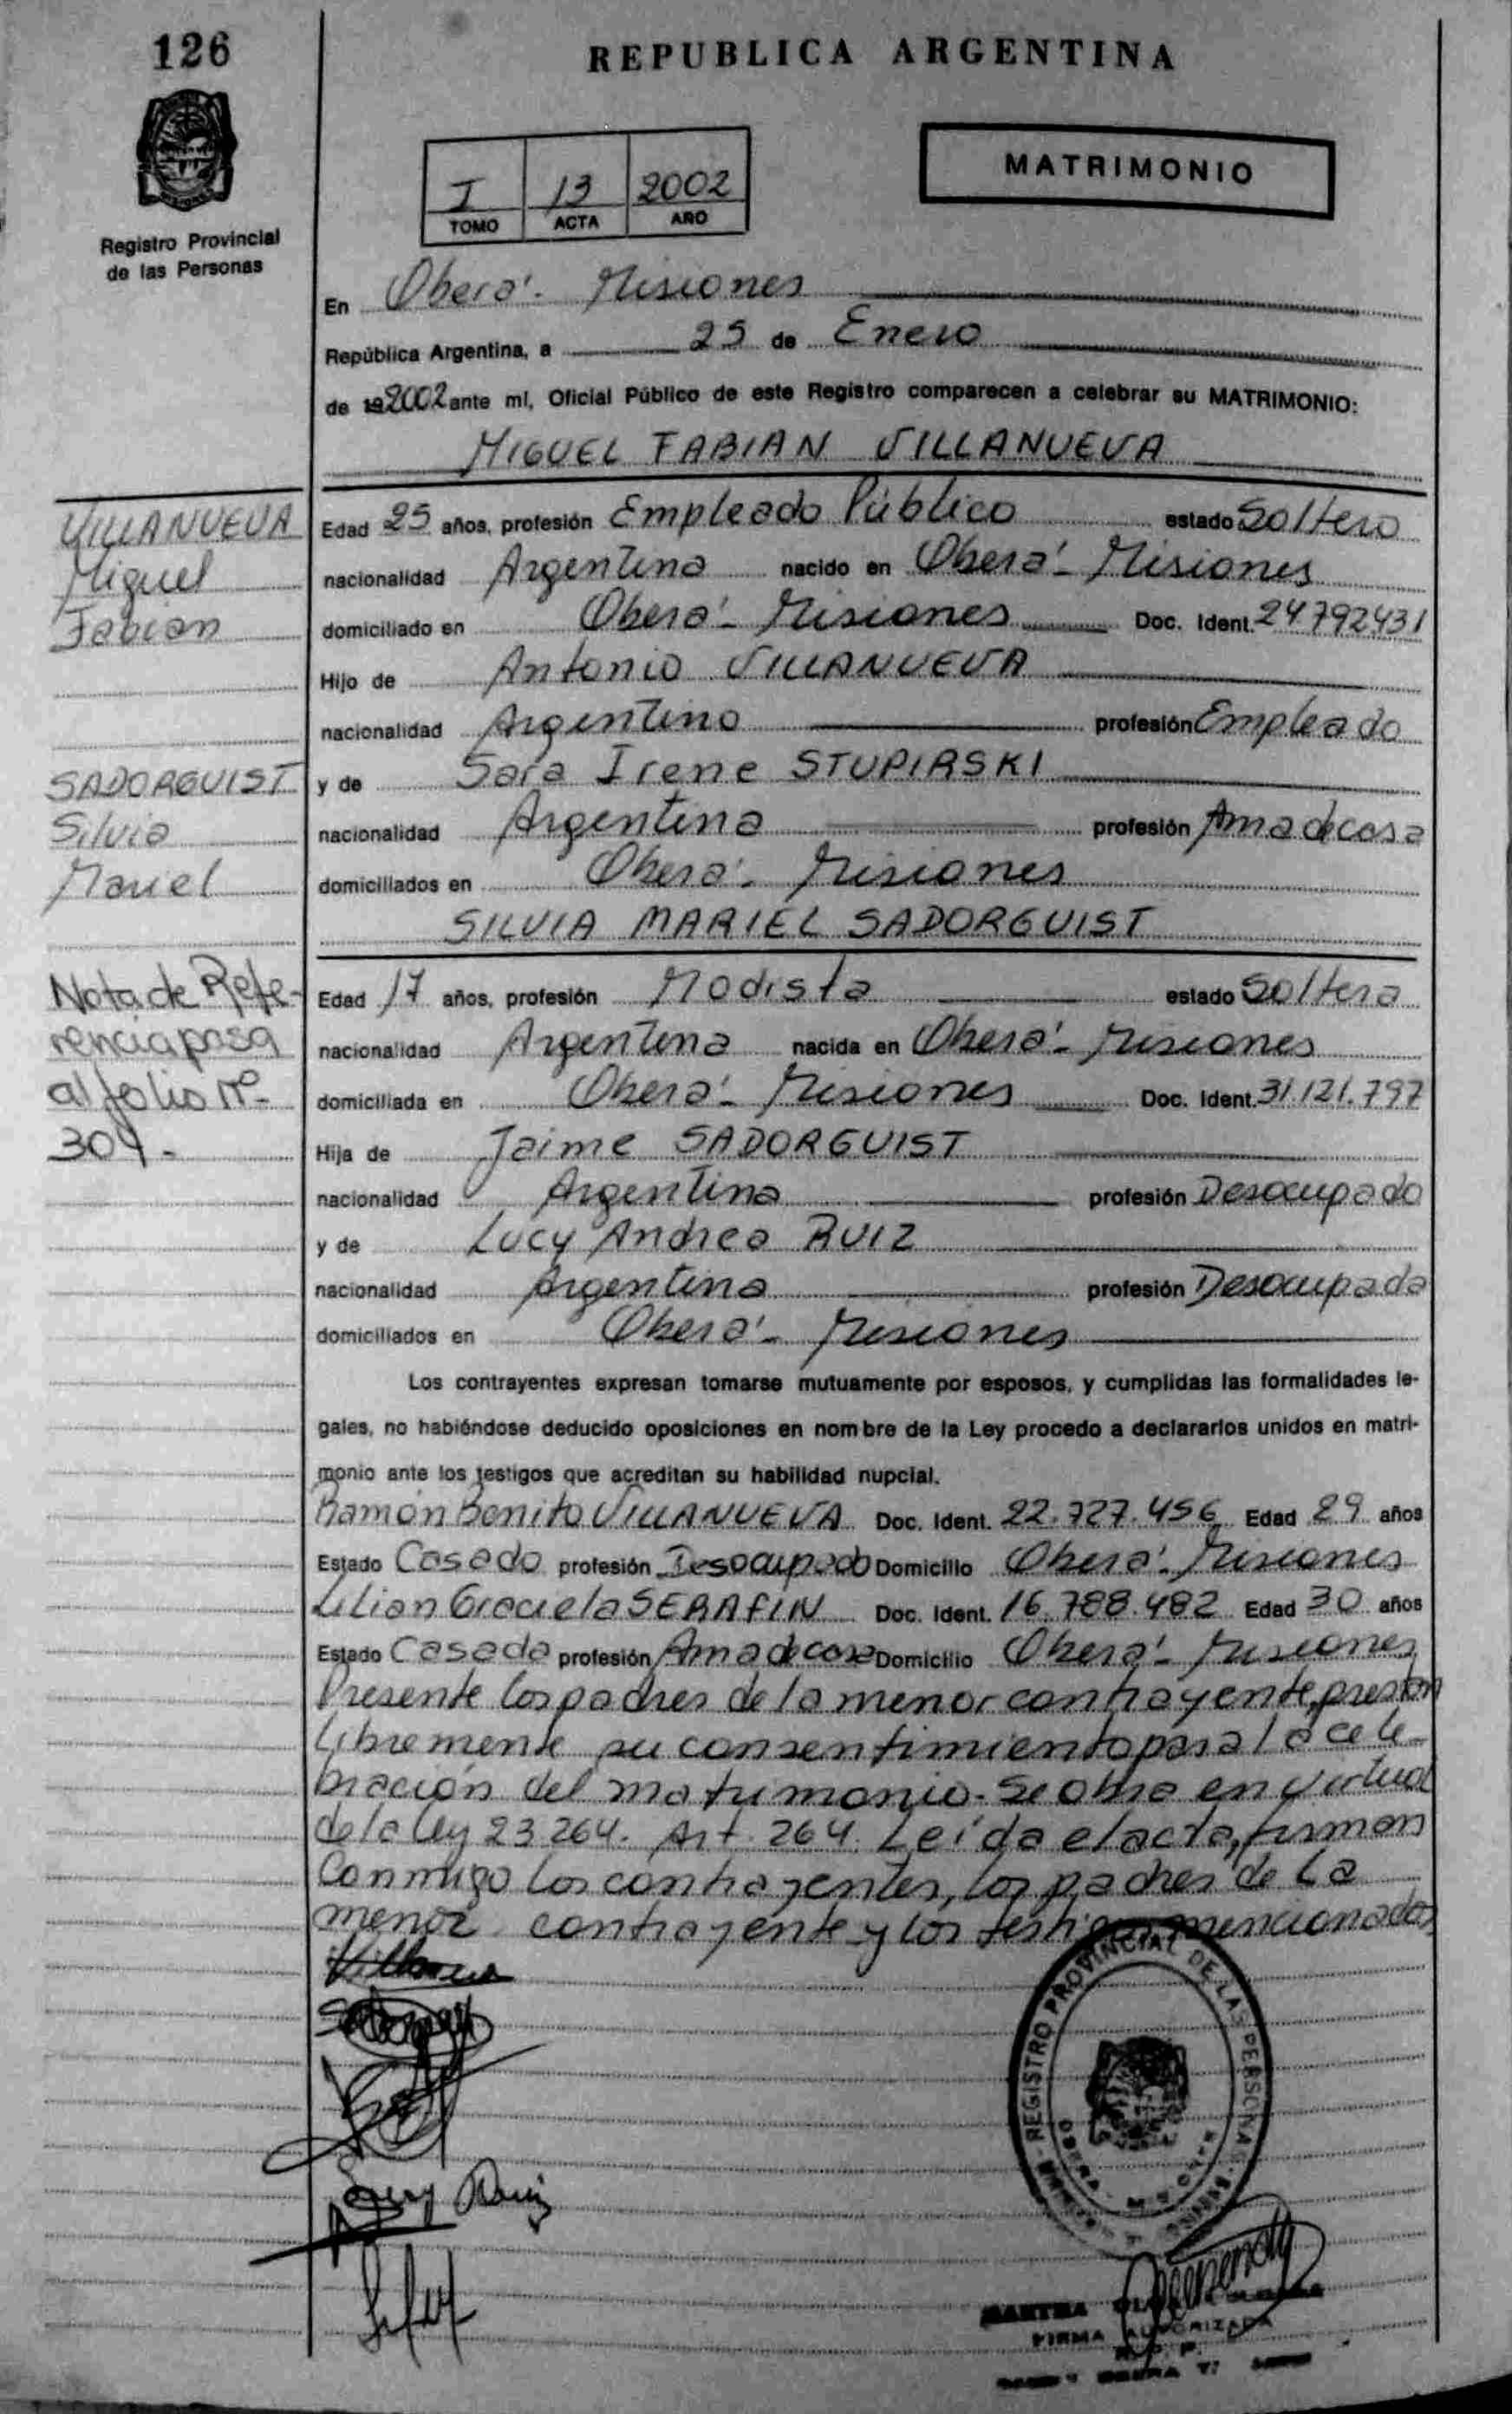 126
REPUBLICA ARGENTINA
Registro Provincial
de las Personas
I 13 2002
TOMO ACTA AÑO
MATRIMONIO
En Oberá - Misiones
República Argentina, a 25 de Enero
de 192002 ante mí, Oficial Público de este Registro comparecen a celebrar su MATRIMONIO:
MIGUEL FABIAN VILLANUEVA
VILLANUEVA
Miguel
Fabian
Edad 25 años, profesión Empleado Público estado Soltero
nacionalidad Argentina nacido en Oberá - Misiones
domiciliado en Oberá - Misiones Doc. Ident. 24.792.431
Hijo de Antonio VILLANUEVA
nacionalidad Argentino profesión Empleado
y de Sara Irene STUPIRSKI
nacionalidad Argentina profesión Ama de casa
domiciliados en Oberá - Misiones
SADORGUIST
Silvia
Mariel
SILVIA MARIEL SADORGUIST
Nota de Refe-
rencia pasa
al folio Nº
304.-
Edad 17 años, profesión Modista estado Soltera
nacionalidad Argentina nacida en Oberá - Misiones
domiciliada en Oberá - Misiones Doc. Ident. 31.121.797
Hija de Jaime SADORGUIST
nacionalidad Argentina profesión Desocupado
y de Lucy Andrea RUIZ
nacionalidad Argentina profesión Desocupada
domiciliados en Oberá - Misiones
Los contrayentes expresan tomarse mutuamente por esposos, y cumplidas las formalidades le-
gales, no habiéndose deducido oposiciones en nombre de la Ley procedo a declararlos unidos en matri-
monio ante los testigos que acreditan su habilidad nupcial.
Ramón Benito VILLANUEVA Doc. Ident. 22.727.456 Edad 29 años
Estado Casado profesión Desocupado Domicilio Oberá - Misiones
Lilian Graciela SERAFIN Doc. Ident. 16.788.482 Edad 30 años
Estado Casada profesión Ama de casa Domicilio Oberá - Misiones
Presente los padres de la menor contrayente, prestan
libremente su consentimiento para la cele-
bración del matrimonio. Se obra en virtud
de la ley 23.264. Art. 264. Leída el acta, firman
conmigo los contrayentes, los padres de la
menor contrayente y los testigos mencionados
REGISTRO PROVINCIAL DE LAS PERSONAS
Lucy Ruiz
MARTHA
FIRMA AUTORIZADA